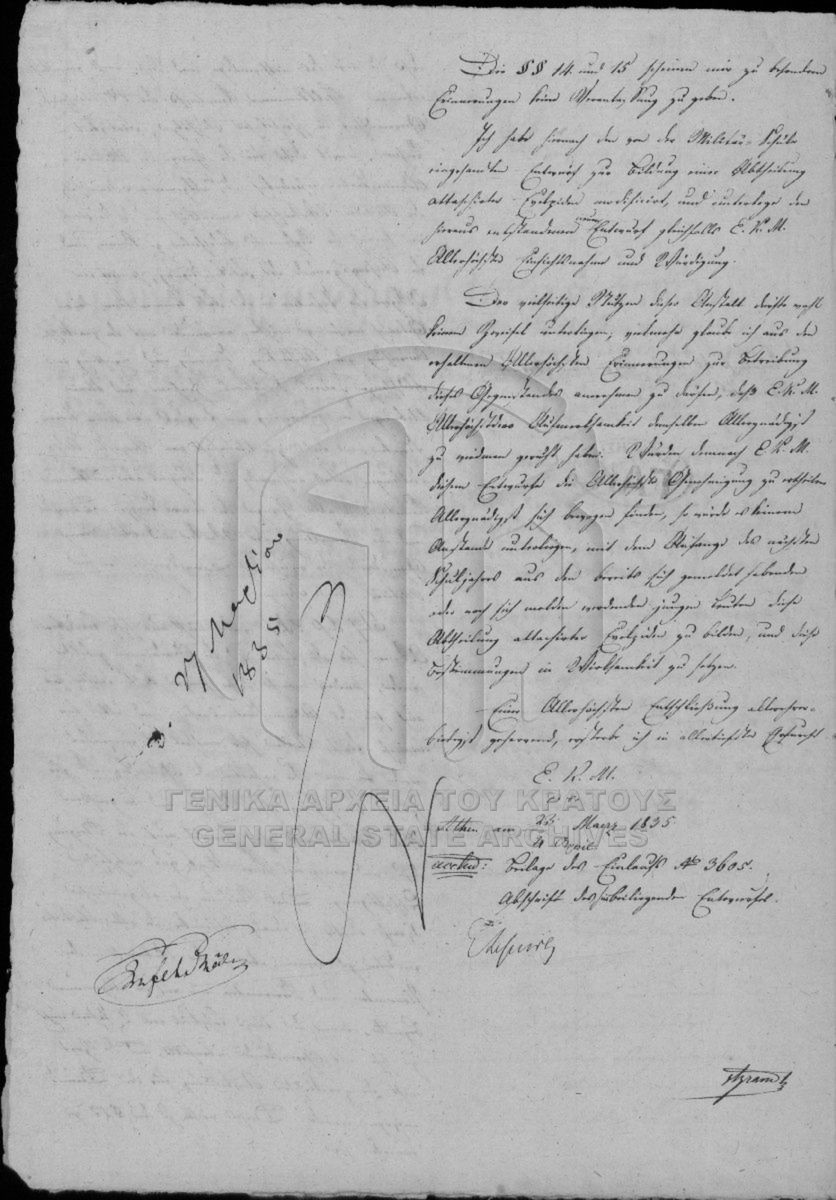 Die §§ 14. und 15 scheinen mir zu besondern
Erinnerungen keine Veranlaßung zu geben.
Ich habe hiernach den von der Militär-Schule
eingesandten Entwurf zur Bildung einer Abtheilung
attachirter Evelpiden modificirt, und unterlege den
hieraus entstandenen neuen Entwurf gleichfalls E. K. M.
Allerhöchste Einsichtsnahme und Würdigung.
Der vielseitige Nutzen dieser Anstalt dürfte wohl
keinem Zweifel unterliegen, vielmehr glaube ich aus den
erhaltenen Allerhöchsten Erinnerungen zur Betreibung
dieses Gegenstandes annehmen zu dürfen, daß E. K. M.
Allerhöchstihre Aufmerksamkeit demselben Allergnädigst
zu widmen geruht haben. Würden demnach E. K. M.
diesem Entwurfe die Allerhöchste Genehmigung zu ertheilen
Allergnädigst sich bewogen finden, so würde es keinem
Anstande unterliegen, mit dem Anfange des nächsten
Schuljahres aus den bereits sich gemeldet habenden
oder noch sich melden werdenden jungen Leuten diese
Abtheilung attachirter Evelpiden zu bilden, und diese
Bestimmungen in Wirksamkeit zu setzen.
Einer Allerhöchsten Entschließung allerehrer-
bietigst geharrend, ersterbe ich in allertiefster Ehrfurcht
E. K. M.
Athen am 23 Maerz 1835
4 April
Beilage des Einlaufs № 3605.
Abschrift des hierbeiliegenden Entwurfes.
27 Μαρτίου
1835
ΓΕΝΙΚΑ ΑΡΧΕΙΑ ΤΟΥ ΚΡΑΤΟΥΣ
GENERAL STATE ARCHIVES